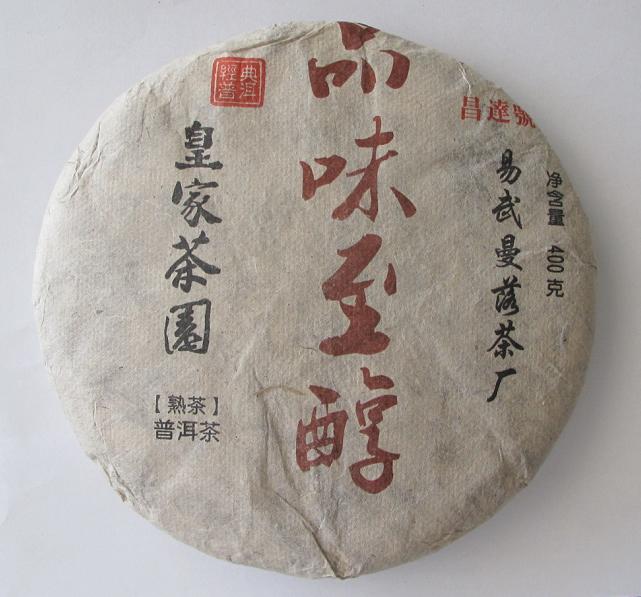 昌達號
净含量 400克
易武曼落茶厂
品味至醇
經典
普洱
皇家茶園
【熟茶】
普洱茶